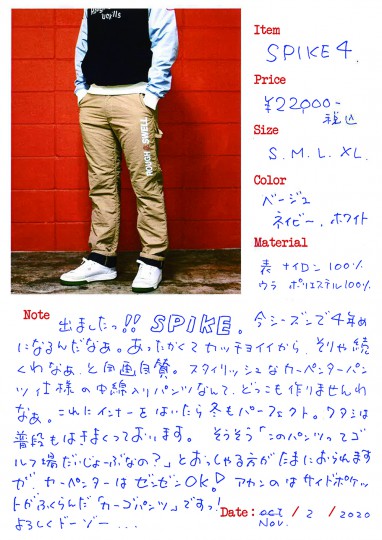 Rough
swells
ROUGH & SWELL
Item
SPIKE 4.
Price
¥22,000-
税込
Size
S. M. L. XL.
Color
ベージュ
ネイビー. ホワイト
Material
表 ナイロン 100%
ウラ ポリエステル100%
Note
出ましたっ!! SPIKE。今シーズンで4年め
になるんだなぁ。あったかくてカッチョイイから、そりゃ続
くわなぁ、と自画自賛。スタイリッシュなカーペンターパン
ツ仕様の中綿入りパンツなんて、どっこも作りませんわ
なぁ。これにインナーをはいたら冬もパーフェクト。ワタシは
普段もはきよっております。そうそう「このパンツってゴ
ルフ場だいじょーぶなの?」とおっしゃる方がたまにおられます
が カーペンターは ゼンゼンOK! アカンのはサイドポケッ
トがふくらんだ「カーゴパンツ」ですっ!
よろしくドーゾー...
Date: oct / 2 / 2020
Nov.